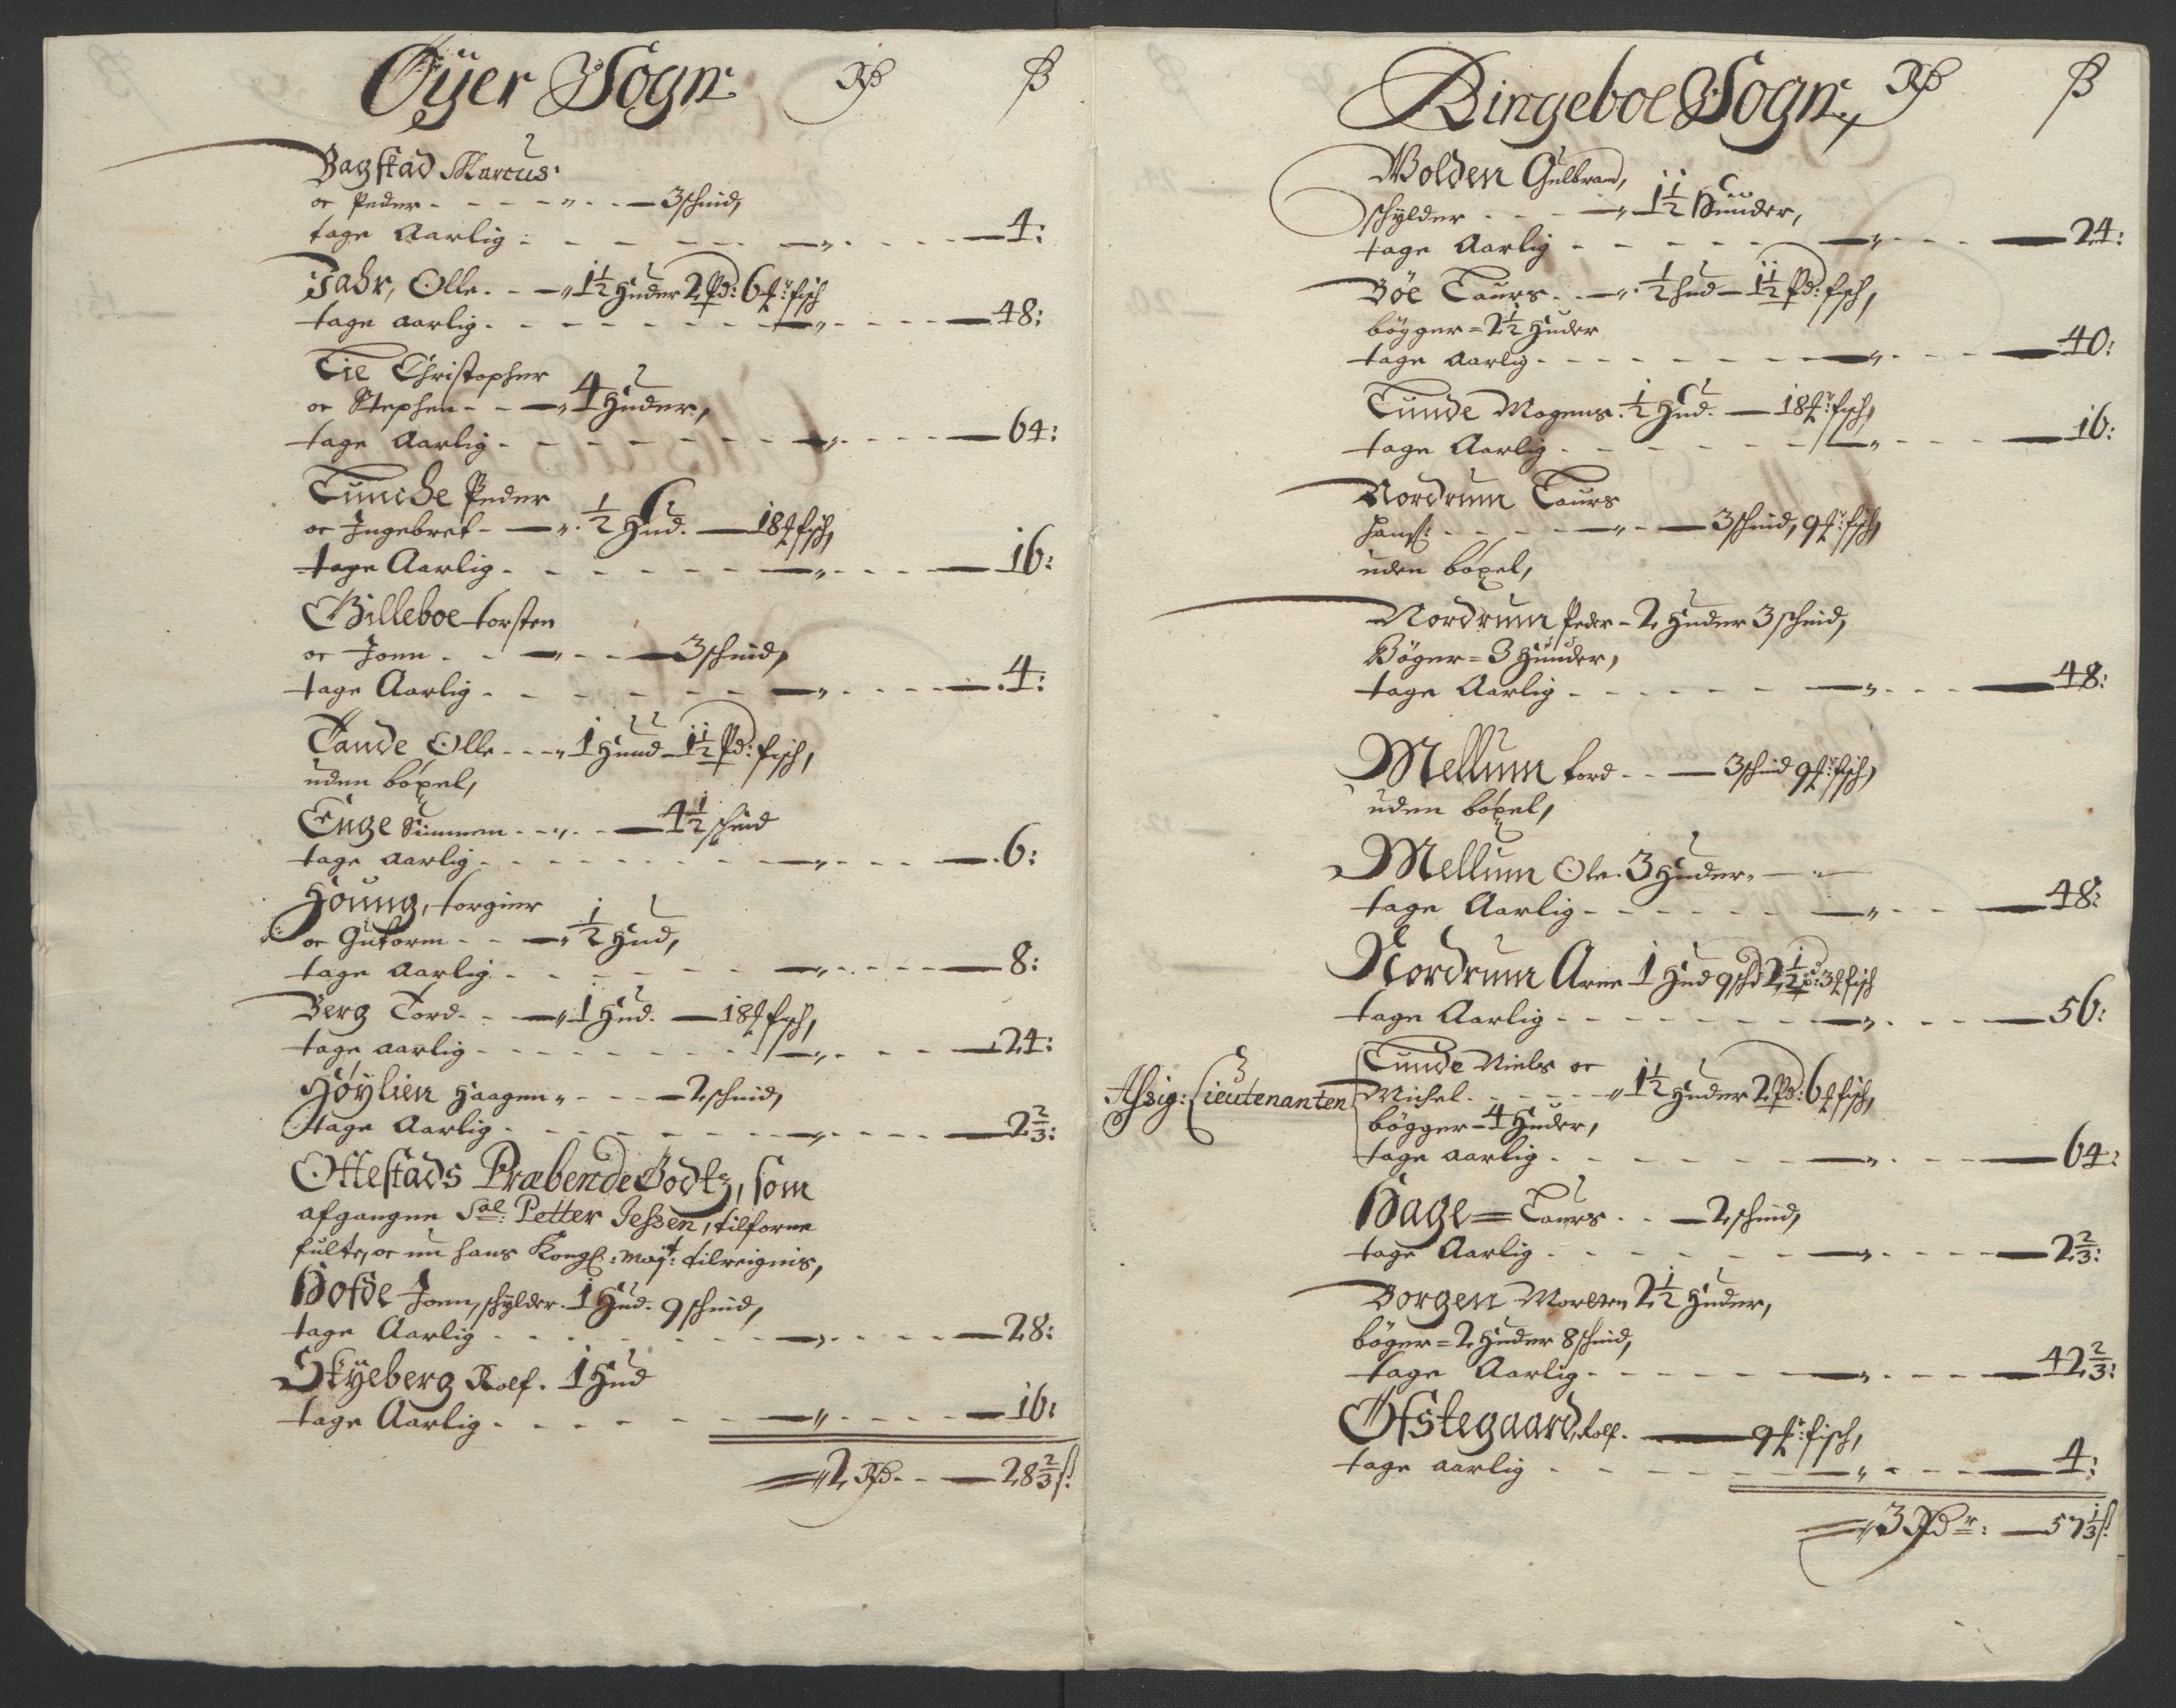 Øÿer Sogn Rd ß
Bagstad Marcus
oc Peder - - - - „ - - 3 schind,
tage Aarlig - - - - „ - - 4:
Jahr, Olle - - „ 1½ Huder 2 Pd: 6 ℔r fisch
tage aarlig - - - - „ - - 48:
Lie Christopher
oc Stephen - - „ 4 Huder,
tage Aarlig - - - - „ - - 64:
Lunche Peder
oc Ingebret - „ ½ Hud. - 18 ℔ fisch,
tage Aarlig - - - - „ - - 16:
Gilleboe torsten
oc Joen - - „ - - 3 schind,
tage Aarlig - - - - „ - - 4:
Tande Olle - - - „ 1 Huud - 1½ Pd: fisch,
uden böxel,
Enge Simmen - - „ - - 4½ schind
tage aarlig - - - - „ - - 6:
Höung, torgier
oc Gutorm - - „ ½ Hud,
tage aarlig - - - - „ - - 8:
Berg Tord - - „ 1 Hud. - 18 ℔ fisch,
tage aarlig - - - - „ - - 24:
Höÿlien Haagen „ - - - 2 schind,
tage Aarlig - - - - „ - - 2⅔:
Ottestads Præbende Godtz, som
afgangne Sal: Petter Jessen, tilforne
fulte, oc nu hans Kongl: Maj:t tilreignis,
Hofde Joen, schylder - 1 Hud. 9 schind,
tage Aarlig - - - - „ - - 28:
Skÿeberg Rolf. 1 Hud
tage Aarlig - - - - „ - - 16:
„ 2 Rd - - 28⅔ ß:
Ringeboe Sogn, Rd ß
Wolden Gulbrand,
schylder - - - „ 1½ Huuder,
tage Aarlig - - - - „ - - 24:
Böe Laurs - - „ ½ hud - 1½ Pd: fisch,
bögger = 2½ Huder
tage Aarlig - - - - „ - - 40:
Lunde Mogens. ½ Hud. - 18 ℔r: fisch,
tage Aarlig - - - - „ - - 16:
Nordrum Laurs
Hans: - - - - „ - - 3 schind, 9 ℔r: fisch,
uden böxel,
Nordrum Peder - 2 Huder 3 schind,
Böger = 3 Huuder,
tage Aarlig - - - - „ - - 48:
Mellum tord - - 3 schind 9 ℔r: fisch,
uden böxel,
Mellum Ole. 3 Huder. - „ -
tage Aarlig - - - - „ - - 48:
Nordrum Arne 1 Hud 9 schd 2½ p: 3 ℔ fisch
tage Aarlig - - - - „ - - 56:
Assig: Lieutenanten
Lunde Niels oc
Michel - - - - „ 1½ Huder 2 Pd: 6 ℔ fisch,
bögger = 4 Huder,
tage aarlig - - - - „ - - 64:
Hage = Laurs - - 2 schind,
tage Aarlig - - - - „ - - 2⅔:
Borgen Morten 2½ Huder,
böger = 2 Huder 8 schind,
tage Aarlig - - - - „ - - 42⅔:
Öfstegaard, Rolf. - 9 ℔r: fisch,
tage aarlig - - - - „ - - 4:
„ 3 Rdr: - 57⅓ ß: